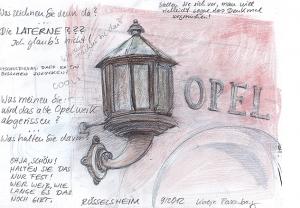 Was zeichnen Sie denn da?
Die LATERNE ???
Ich glaub's nicht!
Was meinen Sie:
wird das alte Opel werk
abgerissen?
Was halten Sie davon?
OH JA, SCHÖN!
HALTEN SIE DAS
NUR FEST!
WER WEIß, WIE
LANGE ES DAS
NOCH GIBT.
Stellen Sie sich vor, man will
vielleicht sogar das Denkmal
OPEL
RÜSSELSHEIM
9/2012